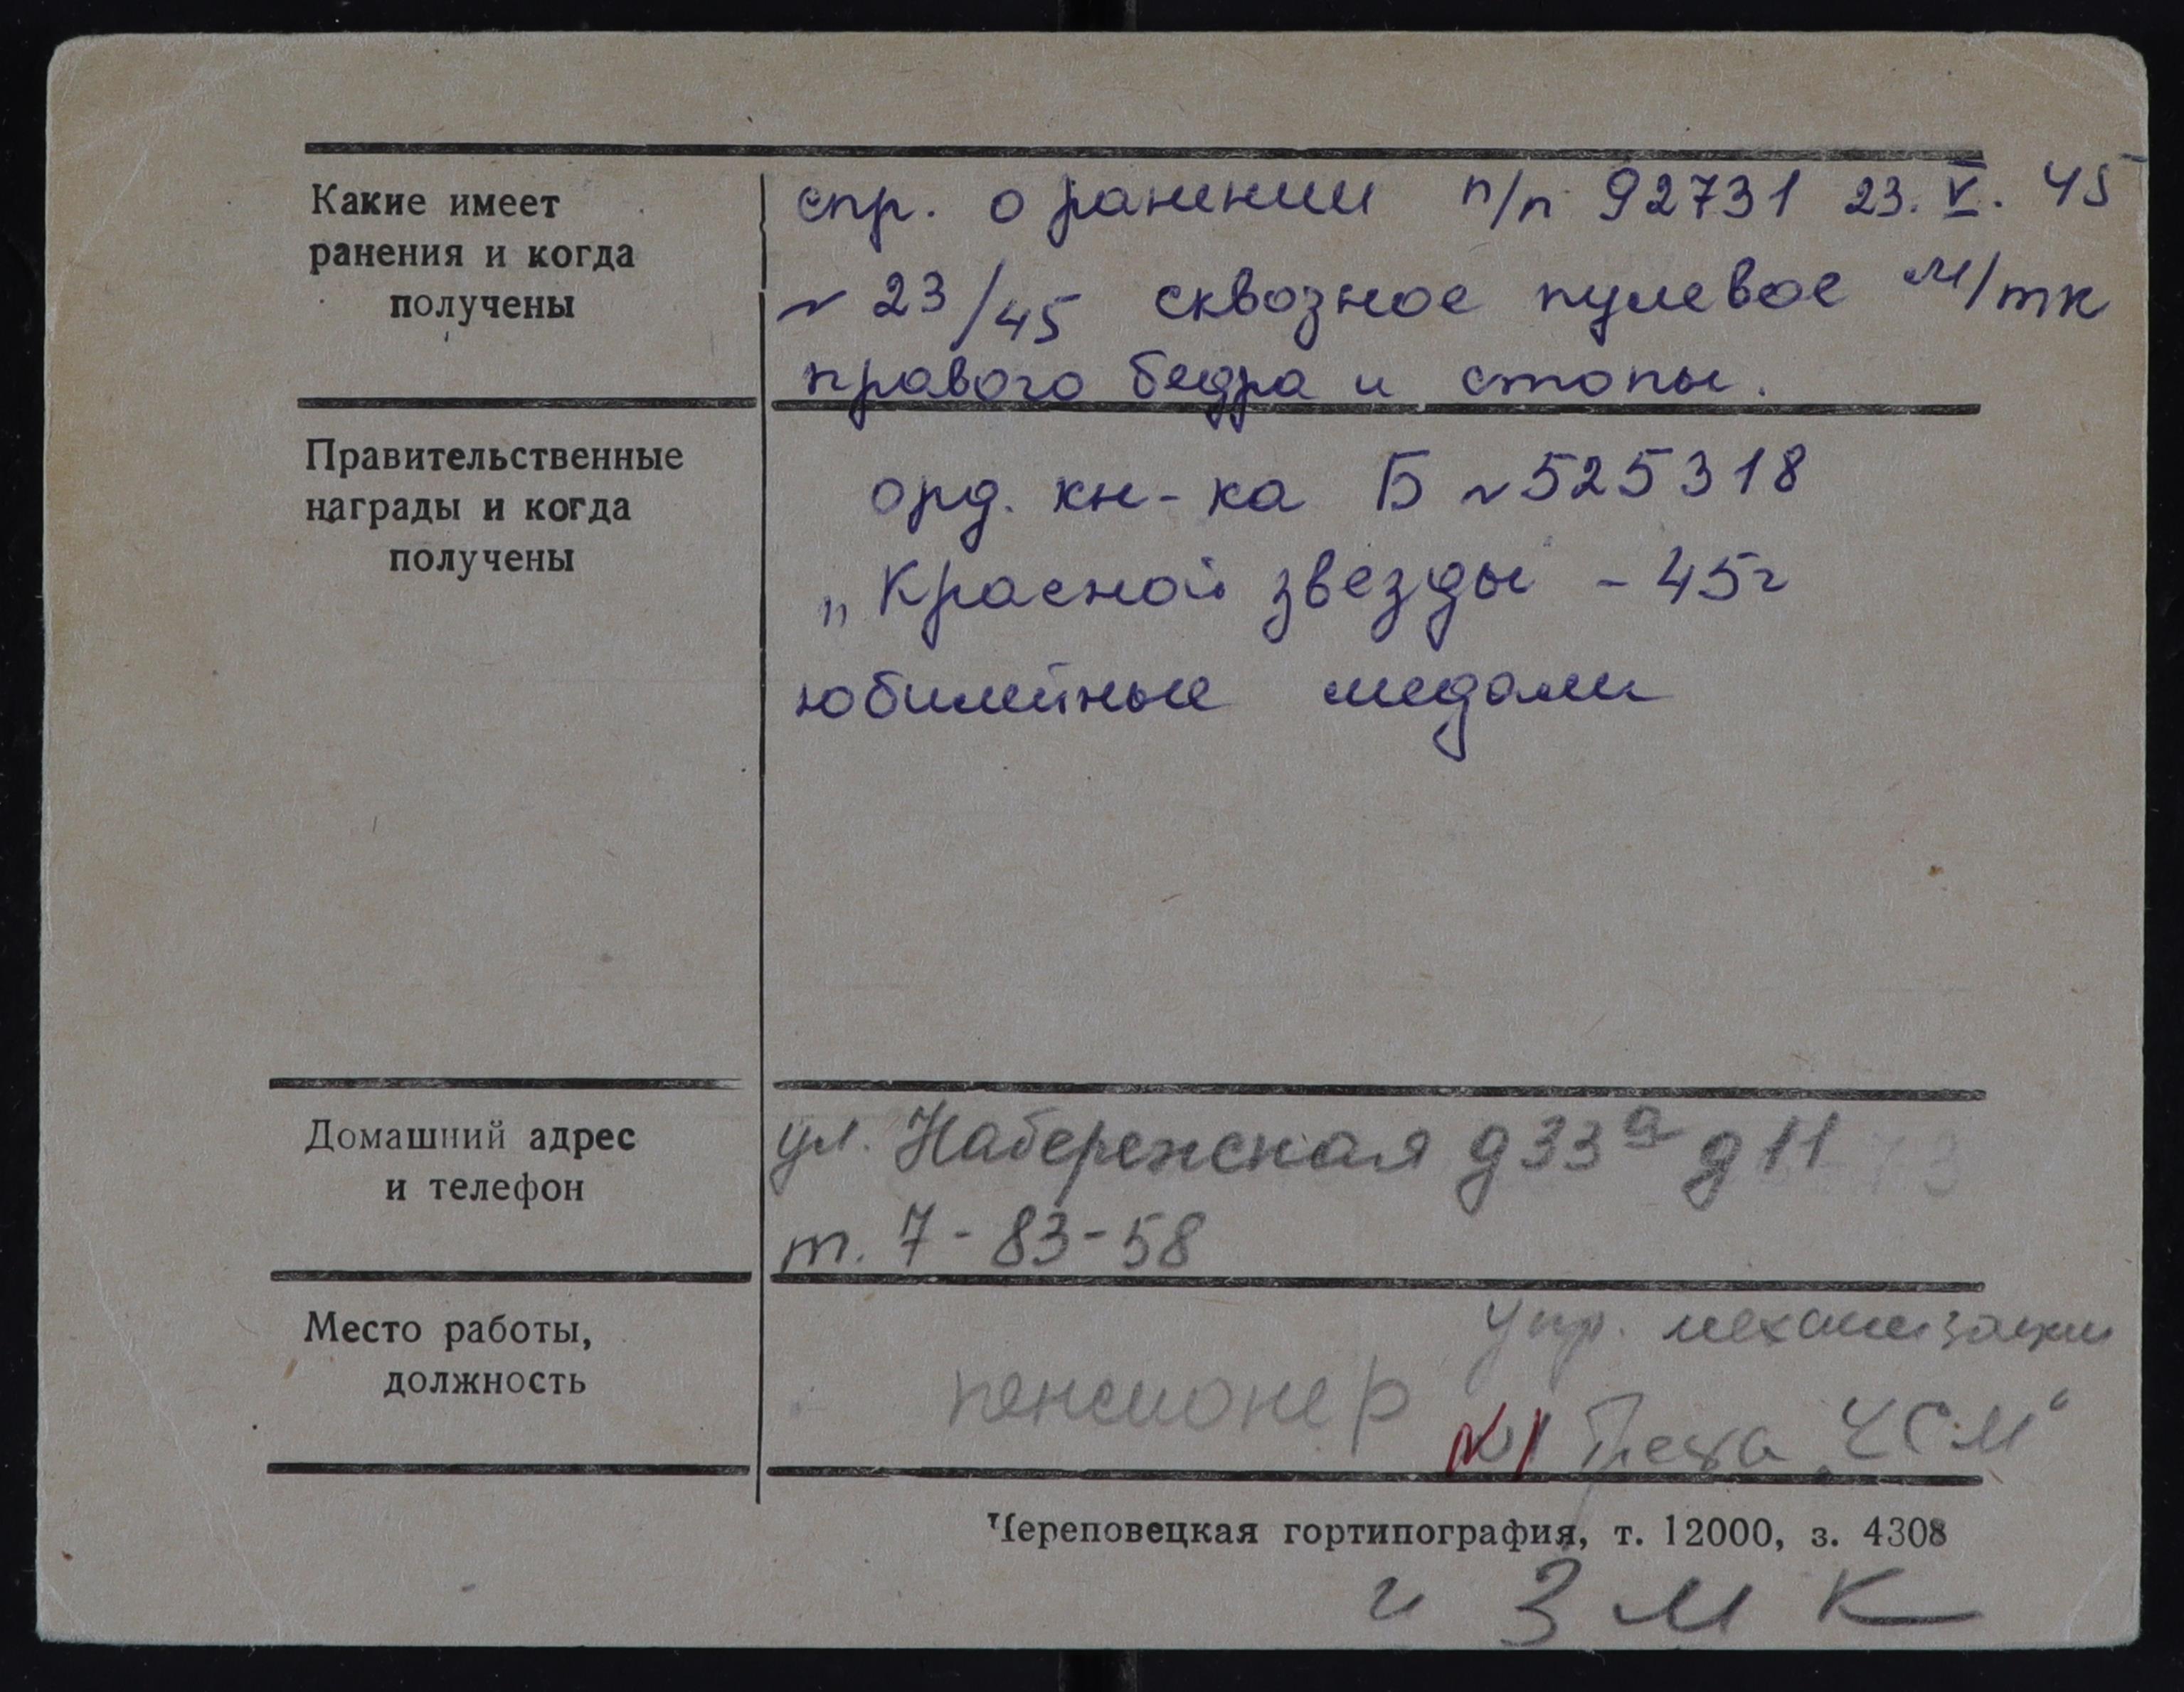 Какие имеет
ранения и когда
получены
спр. о ранении п/п 92731 23.V.45
№ 23/45 сквозное пулевое м/тк
правого бедра и стопы.
Правительственные
награды и когда
получены
орд. кн-ка Б № 525318
„Красной звезды" - 45г
юбилейные медали
Домашний адрес
и телефон
ул. Набережная д33а д 11
т. 7-83-58
Место работы,
должность
упр. механизации
пенсионер №1 Треста „ЧСМ"
Череповецкая гортипография, т. 12000, з. 4308
и ЗМК